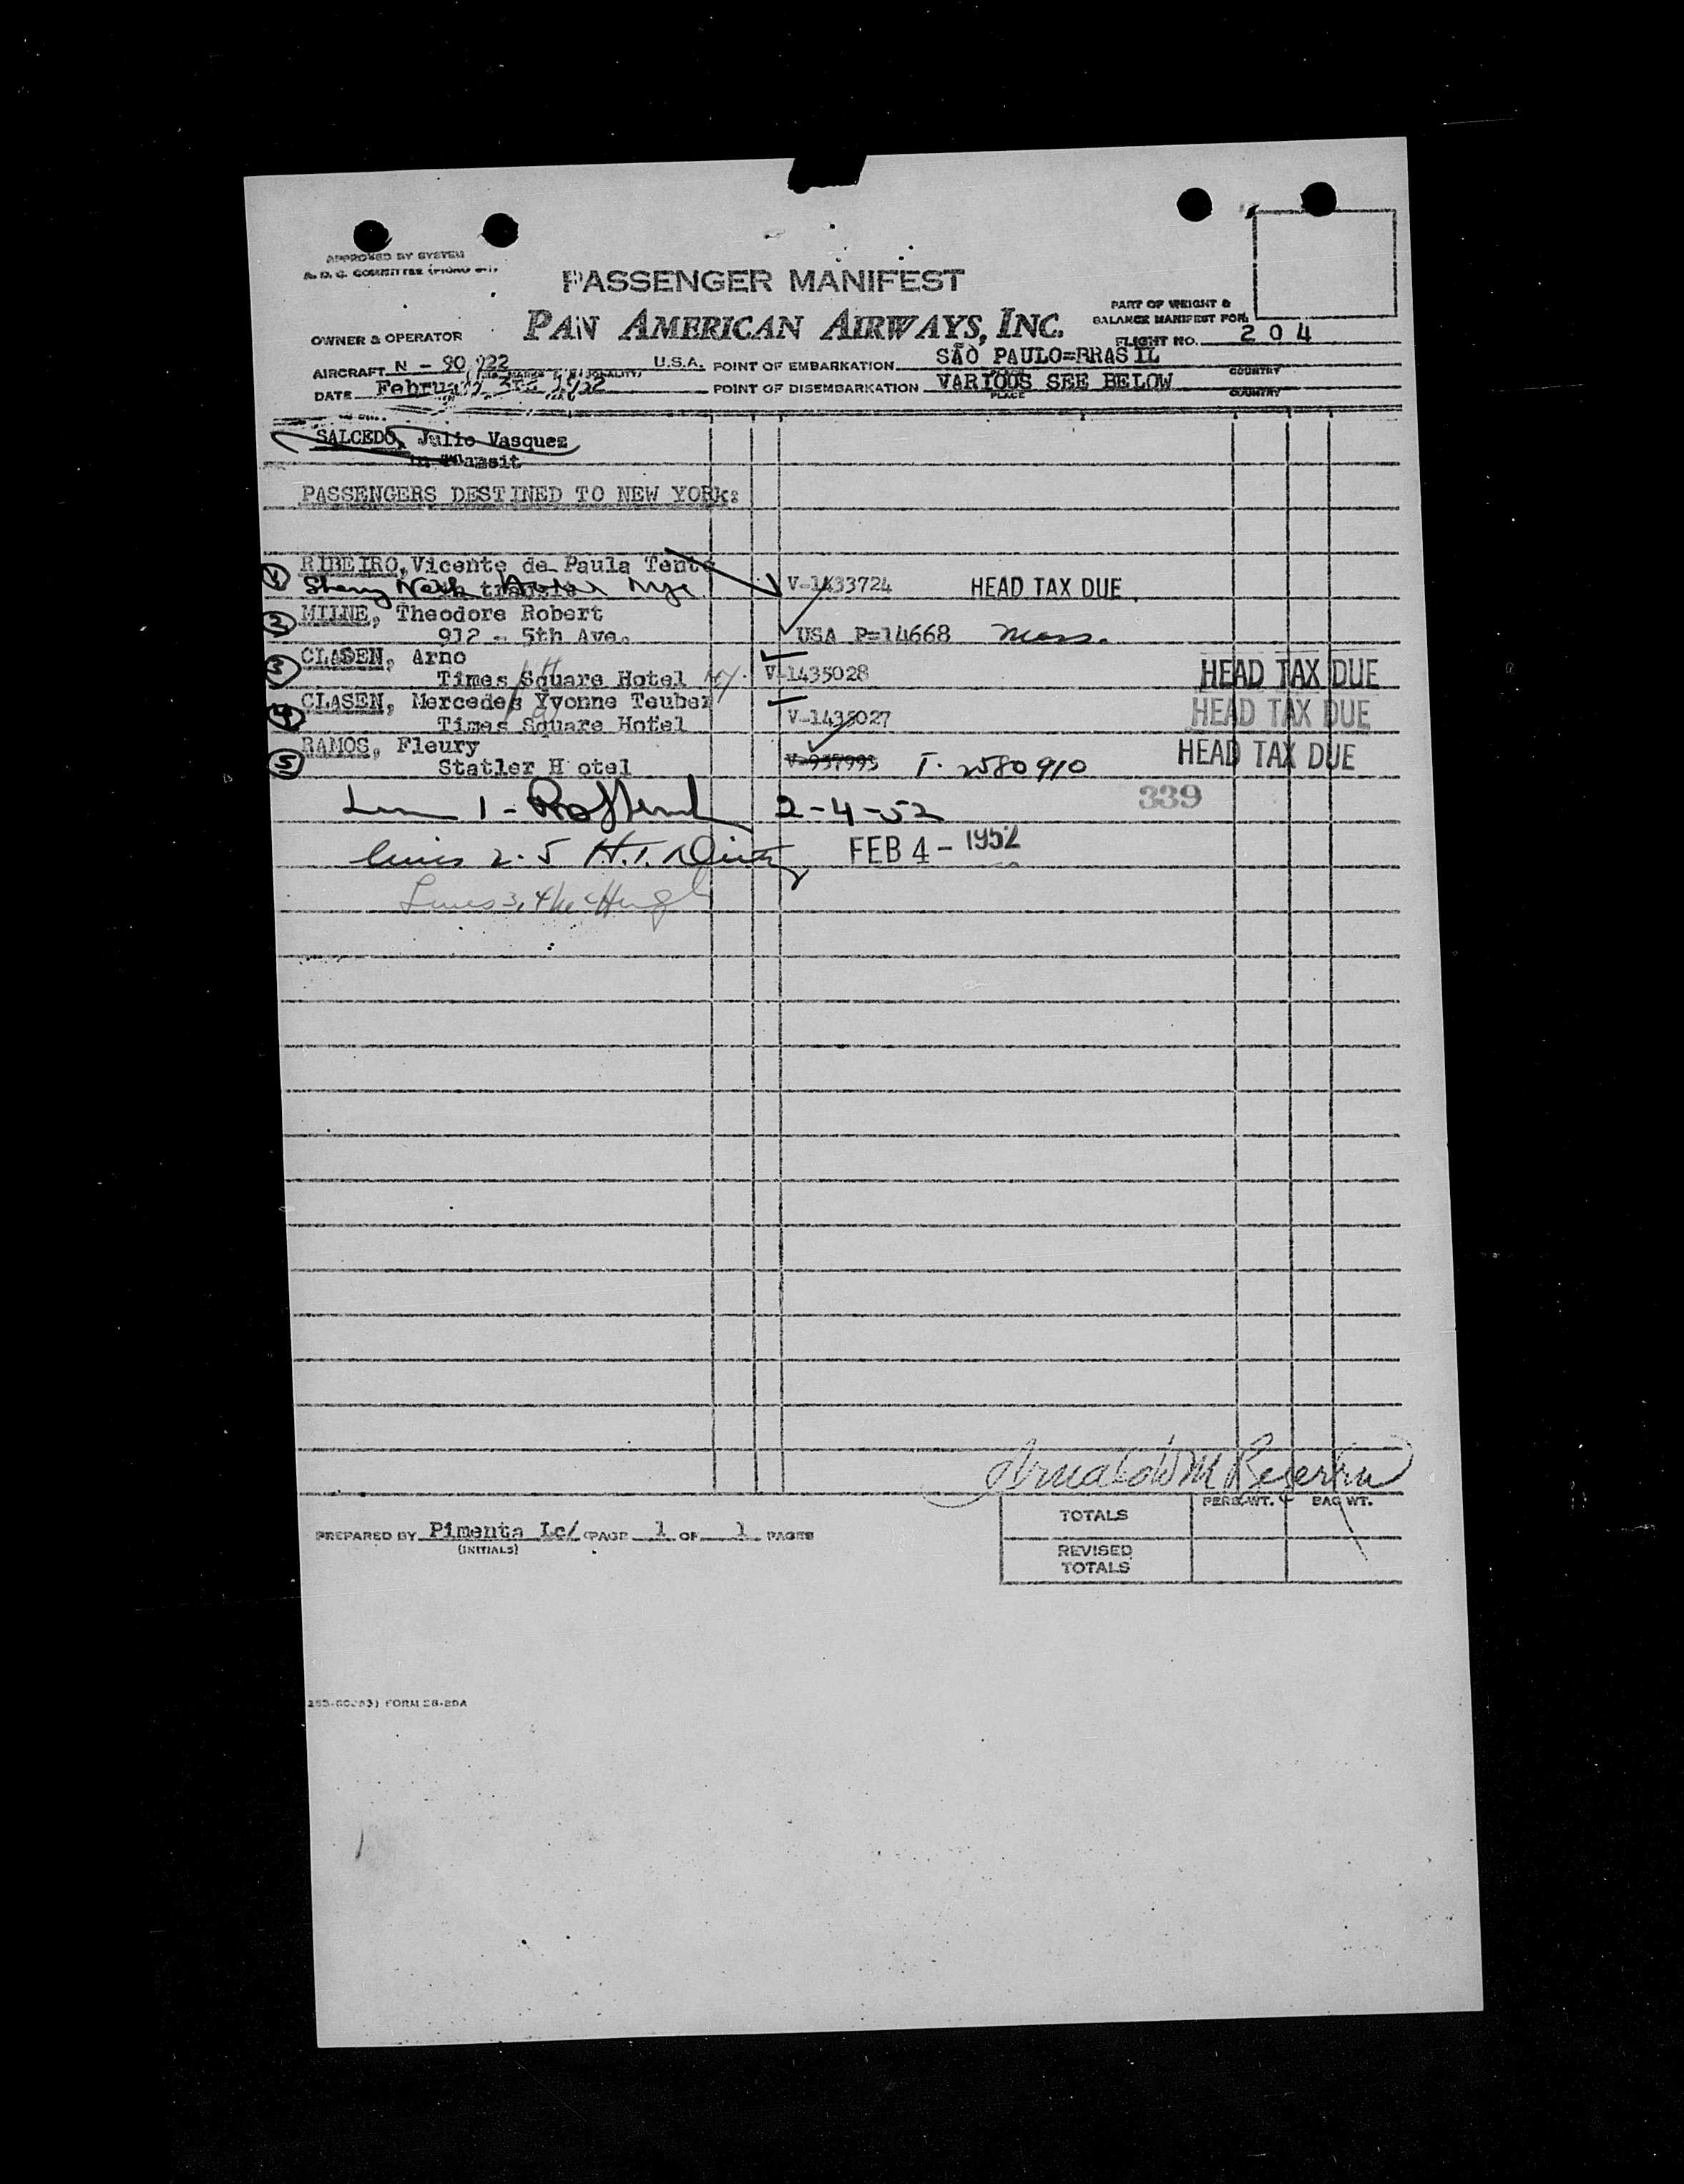 APPROVED BY SYSTEM
PASSENGER MANIFEST
PAN AMERICAN AIRWAYS, INC.
PART OF WEIGHT &
BALANCE MANIFEST FOR
OWNER & OPERATOR
FLIGHT NO. 204
AIRCRAFT N - 90 922 U.S.A. POINT OF EMBARKATION SÃO PAULO=BRASIL
COUNTRY
DATE February 3rd 1952 POINT OF DISEMBARKATION VARIOUS SEE BELOW
PLACE COUNTRY
SALCEDO, Julio Vasquez
in transit
PASSENGERS DESTINED TO NEW YORK:
1 RIBEIRO, Vicente de Paula
V-1433724 HEAD TAX DUE
2 MILNE, Theodore Robert
912 - 5th Ave. USA P=14668 Mass.
3 CLASEN, Arno
Times Square Hotel NY. V-1435028 HEAD TAX DUE
4 CLASEN, Mercedes Yvonne Teuber
Times Square Hotel V-1435027 HEAD TAX DUE
5 RAMOS, Fleury
Statler H otel V-937993 T. 2580910 HEAD TAX DUE
1 - 2-4-52 339
lines 2-5 H.T. FEB 4 - 1952
Lines 3, 4
TOTALS PERS. WT. BAG WT.
PREPARED BY Pimenta Lc/ PAGE 1 OF 1 PAGES
(INITIALS)
REVISED
TOTALS
FORM 28-80A